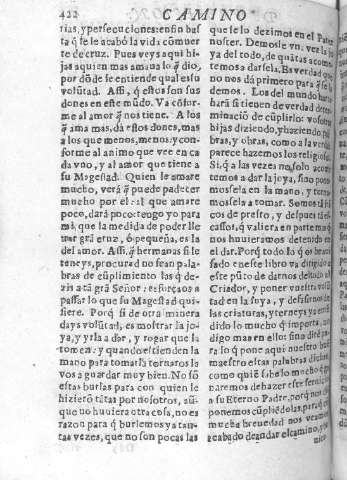 422 CAMINO
rias, y persecuciones: enfin bas
ta q̃ se le acabó la vida cõ muer
te de cruz. Pues veys aqui hi-
jas aquien mas amaua lo q̃ dio,
por dõde se entiende qual es su
volũtad. Assi, q̃ estos son sus
dones en este mũdo. Va cõfor-
me al amor q̃ nos tiene. A los
q̃ ama mas, dà estos dones, mas
a los que menos, menos: y con-
forme al animo que vee en ca
da vno, y al amor que tiene a
su Magestad. Quien le amare
mucho, verá q̃ puede padecer
mucho por el: al que amare
poco, dará poco: tengo yo para
mi, que la medida de poder lle
uar grã cruz, ò pequeña, es la
del amor. Assi q̃ hermanas si le
teneys, procurad no sean pala-
bras de cũplimiento las q̃ de-
zis a tã grã Señor: esforçaos a
passar lo que su Magestad qui-
siere. Porq̃ si de otra minera
days volũtad, es mostrar la jo-
ya, y yrla a dar, y rogar que la
tomen: y quando estienden la
mano para tomarla tornaros la
vos a guardar muy bien. No sõ
estas burlas para con quien le
hizierõ tãtas por nosotros, aũ-
que no huuiera otra cosa, no es
razon para q̃ burlemos ya tan-
tas vezes, que no son pocas las
que se lo dezimos en el Pater
noster. Demosle vn. ver la jo
ya del todo, de quãtas acome-
temos a darsela. Es verdad que
no nos dà primero para q̃ se la
demos. Los del mundo harto
harã si tienen de verdad deter-
minacion de cũplirlo: vosotras
hijas diziendo, y haziendo pala
bras, y obras, como a la verdad
parece hazemos los religiosos.
Si, q̃ a las vezes no solo acome
temos a dar la joya, sino pone-
mossela en la mano, y torna-
mosela a tomar. Somos tã fran
cos de presto, y despues tã es-
cassos, q̃ valiera en parte mas q̃
nos huuieramos detenido en
el dar. Porq̃ todo lo q̃ os he aui
sado en este libro va dirigido a
este pũto de darnos del todo al
Criador, y poner nuestra volũ
tad en la suya, y desasirnos de
las criaturas, y terneys ya entẽ
dido lo mucho q̃ importa, no
digo mas en ello: sino diré pa
ra lo q̃ pone aqui nuestro buẽ
maestro estas palabras dichas,
como quiẽ sabe lo mucho q̃ ga
naremos de hazer este seruicio
a su Eterno Padre, porq̃ nos dis
ponemos cũpliẽdolas, para q̃ cõ
mucha breuedad nos veamos
acabado de andar el camino, y be